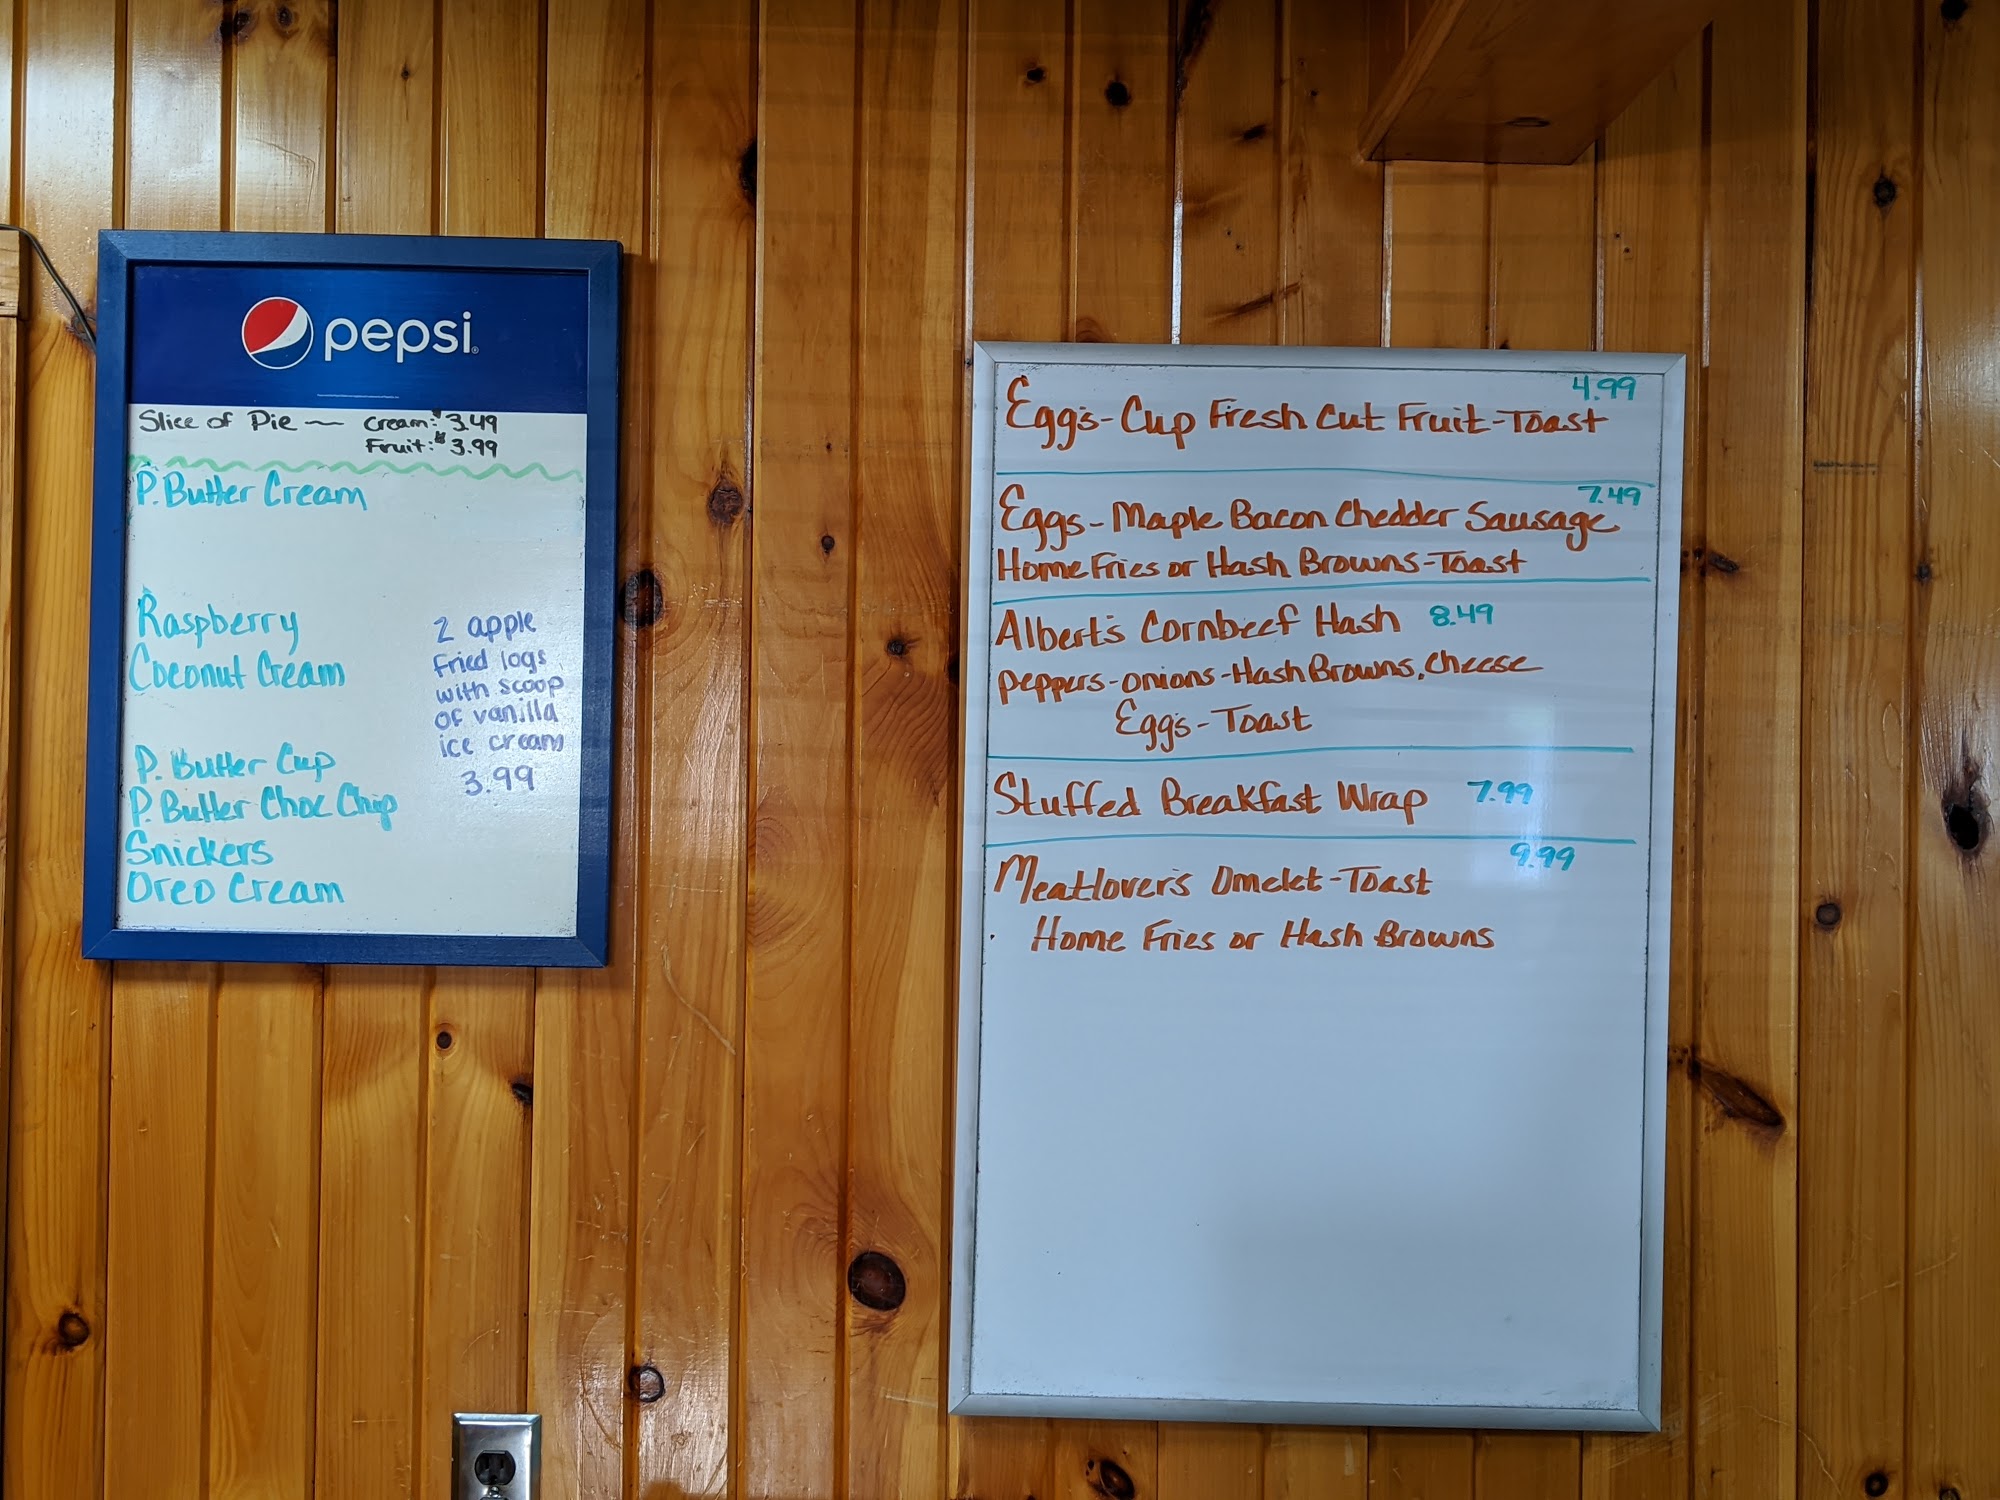 pepsi
Slice of Pie — Cream: $3.49
Fruit: $3.99
P. Butter Cream
Raspberry
Coconut Cream
P. Butter Cup
P. Butter Choc Chip
Snickers
Oreo Cream
2 apple
Fried logs
with scoop
of vanilla
ice cream
3.99
4.99
Egg's - Cup Fresh Cut Fruit - Toast
7.49
Eggs - Maple Bacon Chedder Sausage
Home Fries or Hash Browns - Toast
Albert's Cornbeef Hash 8.49
peppers - onions - Hash Browns, cheese
Egg's - Toast
Stuffed Breakfast Wrap 7.99
9.99
Meatlover's Omelet - Toast
Home Fries or Hash Browns